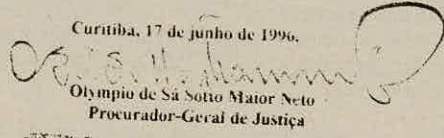 Curitiba, 17 de junho de 1996.
Olympio de Sá Sotto Maior Neto
Procurador-Geral de Justiça